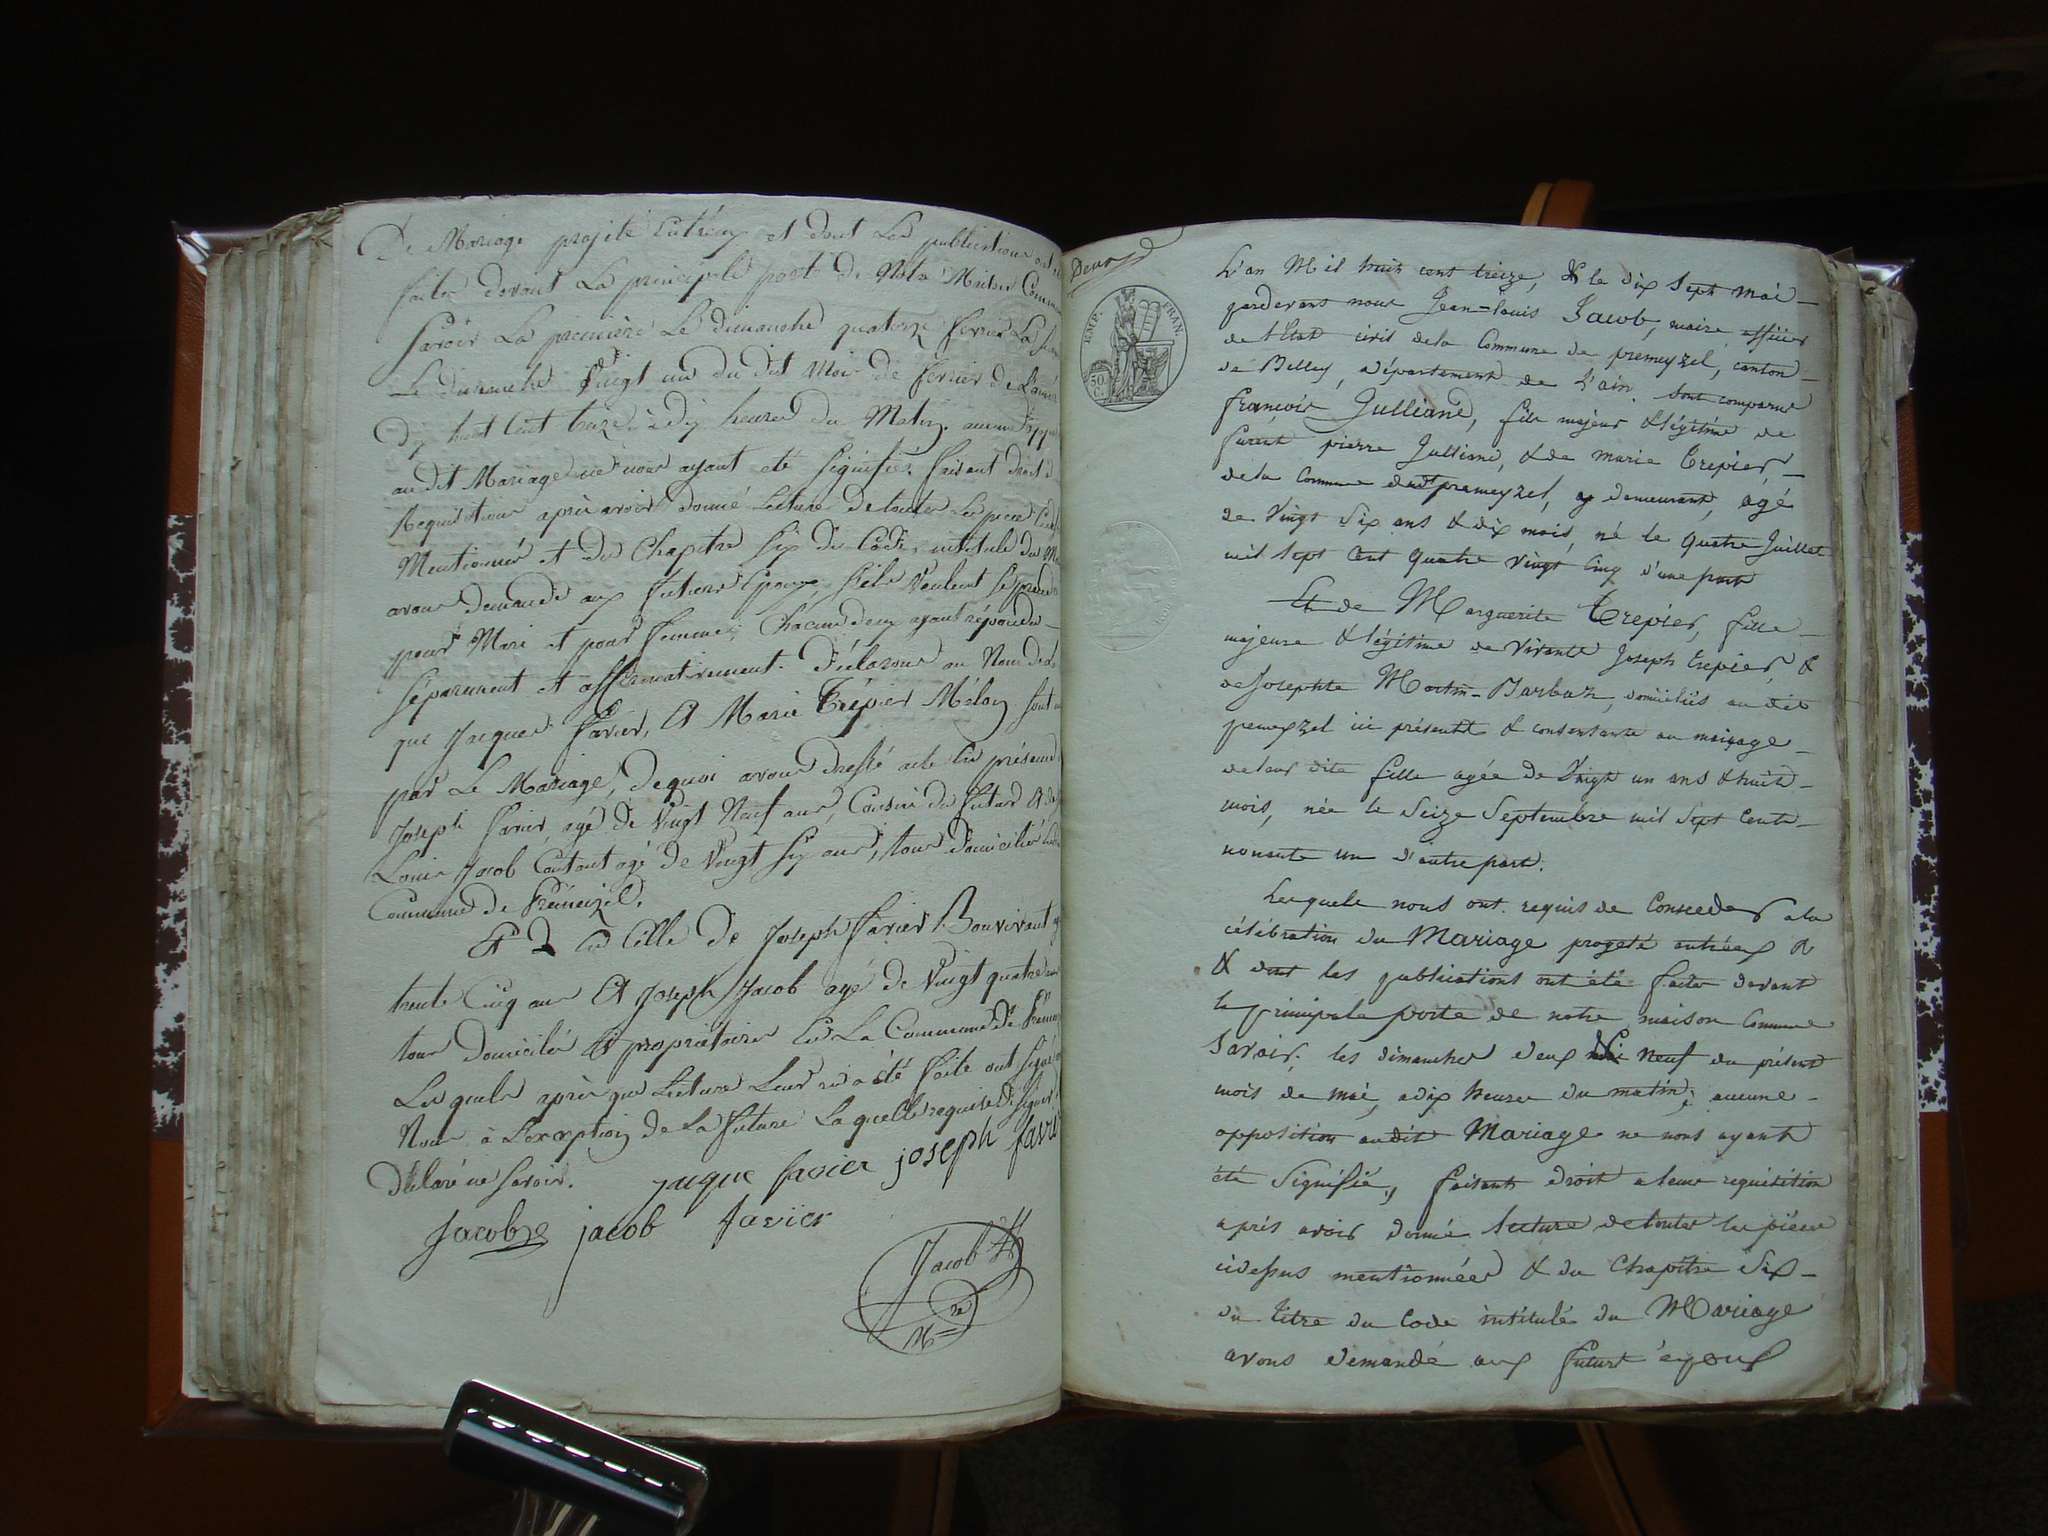 De Mariage projeté Entr'eux et dont Les publications ont
faites devant La principale porte de Notre Maison Commune
Savoir La premiere Le dimanche quatorze fevrier La
Le dimanche Vingt un du dit Mois de fevrier de L'année
Dix huit Cent treize à dix heures du Matin. aucune
au dit Mariage ne nous ayant eté Signifiée. faisant droit à
Requisitions après avoir donné Lecture de toutes Les pieces
Mentionnés et du Chapitre Six du Code, intitulé du
avons demandé aux futurs Epoux, S'ils Veulent Se prendre
pour Mari et pour femme; Chacun deux ayant répondu
Séparément et affirmativement. Déclarons au Nom de La
que Jacques favier, Et Marie Trépier Mélon Sont
par Le Mariage, de quoi avons dressé acte En présence
Joseph favier, agé de Vingt Neuf ans, Cousin du futur Et de
Louis Jacob Coutant agé de Vingt Six ans, tous domiciliés
Commune de Prémeizel.
Et En Celle de Joseph favier Bonvivant
trente Cinq ans Et Joseph Jacob agé de Vingt quatre ans
tous domiciliés Et propriétaires En La Commune de
Les quels après que Lecture Leur en a été faite ont Signé
Nous à L'exception de La future La quelle requise de Signer
Déclaré ne Savoir. jacque favier joseph favier
Jacob jacob favier
Jacob
M
Deux
EMP. FRAN.
50 C.
L'an Mil huit cent treize, & le dix Sept mai
pardevant nous Jean-louis Jacob, maire, officier
de l'Etat civil dela Commune de premeyzel, canton
de Belley, département de l'ain. Sont comparus
françois Julliand, fils majeur & légitime de
furent pierre Julliand, & de marie trepier,
dela Commune dudt premeyzel, y demeurant, agé
de Vingt Six ans & dix mois, né le quatre Juillet
mil Sept Cent quatre vingt Cinq d'une part
Et de Marguerite Trepier, fille
majeure & légitime de vivants Joseph trepier, &
de Josephte Martin-Barbaz, domiciliés au dit
pemeyzel ici présents & consentants au mariage
de leur dite fille agée de Vingt un ans & huit
mois, née le Seize Septembre mil Sept Cents
nonante un d'autre part.
Lesquels nous ont requis de Conceder a la
célébration du Mariage progeté entr'eux &
& dont les publications ont été faites devant
la principale porte de notre maison Commune
Savoir; les dimanches deux & Neuf du présent
mois de mai, a dix heures du matin; aucune
opposition audit Mariage ne nous ayant
été Signifié, faisant droit a leurs requisition
après avoir donné lecture de toutes les pièces
cidessus mentionnées & du Chapitre Six
du titre du Code intitulé du Mariage
avons demandé aux futurs époux